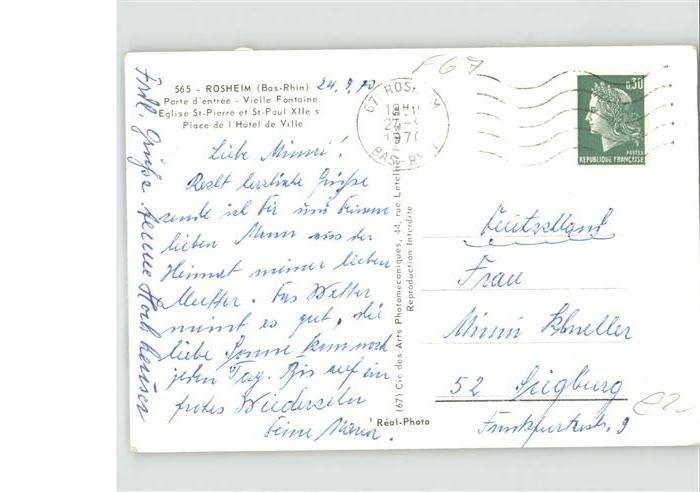 565 - ROSHEIM (Bas-Rhin)
Porte d'entrée - Vielle Fontaine
Eglise St-Pierre et St-Paul XIIe s
Place de l'Hôtel de Ville
24.9.70
Liebe Minni!
Recht herzliche Grüße
sende ich Dir und Deinem
lieben Mann aus der
Heimat meiner lieben
Mutter. Das Wetter
meint es gut, die
liebe Sonne kam noch
jeden Tag. Bis auf ein
frohes Wiedersehn
Deine Maria.
Frdl. Grüße
(67) Cie des Arts Photomécaniques, 44, rue Letellier
Reproduction Interdite
Réal-Photo
F67
67 ROS
BAS-RHIN
0,30
POSTES
REPUBLIQUE FRANÇAISE
Deutschland
Frau
Minni
52 Siegburg
Frankfurterstr. 9